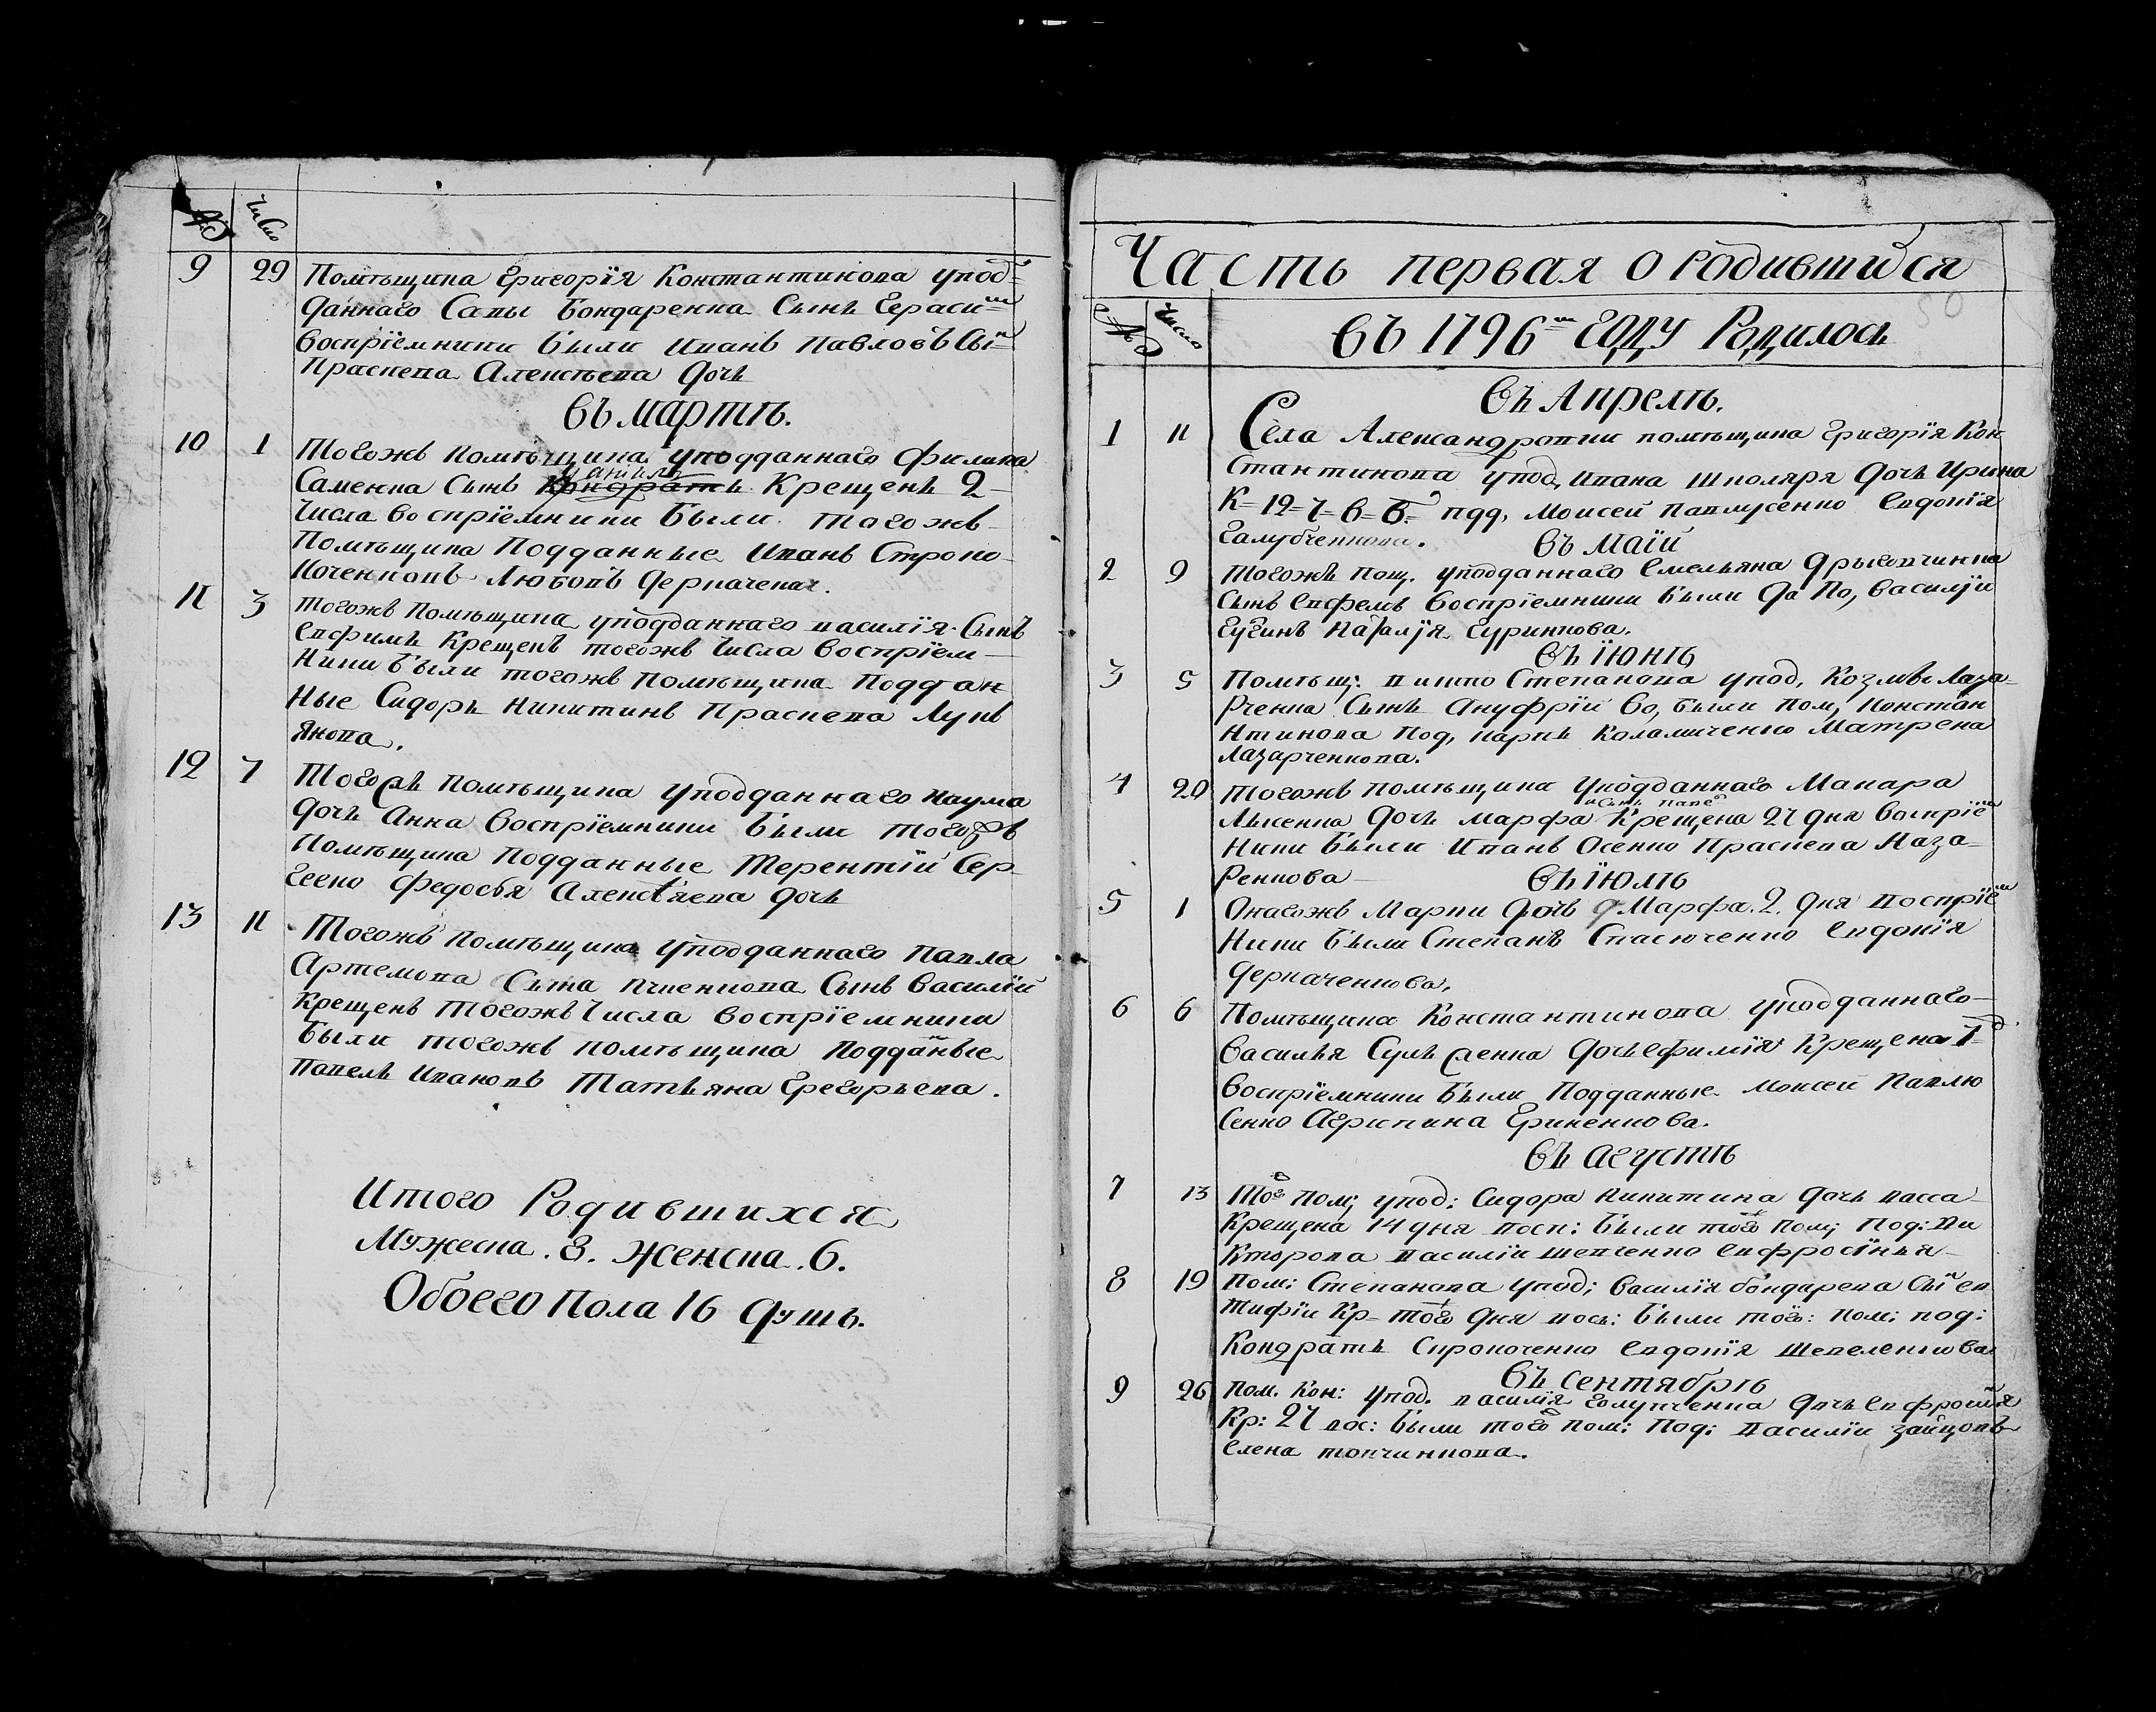 № Число
9 29 Помѣщика Григорїя Константинова упод=
даннаго Савы Бондаренка Сынъ Гераси м
воспрїемники были Иванъ Павловъ Сы н
Праскева Алексѣева дочь
въ мартѣ.
10 1 Тогожъ помѣщика уподданнаго Филипа
Саменка Сынъ Кондратъ Даниилъ Крещенъ 2
числа воспрїемники были тогожъ
помѣщика подданные Иванъ Строко
коченковъ Любовъ Деркаченк.
11 3 тогожъ помѣщика уподданнаго василїя Сынъ
Евфимъ Крещенъ тогожъ числа воспрїем
ники были тогожъ помѣщика поддан
ные Сидоръ Никитинъ Праскева Лукъ
янова.
12 7 Тогожъ помѣщика уподданнаго Наума
дочь Анна воспрїемники были тогожъ
помѣщика подданные Терентїй Сер
геено Федосья Алексѣева дочь
13 11 Тогожъ помѣщика уподданнаго Павла
Артемова Сына Пченкова Сынъ Василїй
крещенъ тогожъ числа воспрїемники
были тогожъ помѣщика подданые
Павелъ Ивановъ Татьяна Грегорьева.
Итого Родившихся
Мужеска. 8. Женска. 6.
Обоего пола 16 душъ.
Часть первая о родившихся
50
№ Число въ 1796 м году Родилось
въ Апрелѣ.
1 11 Села Александровки помѣщика Григорїя Кон
стантинова упод, Ивана Школяря дочь Ирина
К=12=ч=в=б= пдд, Моисей Павлусенко Евдокїя
Галубченкова.
въ маїи
2 9 тогожъ пощ. уподданнаго Емельяна Дрыговчинка
Сынъ Евфемъ воспрїемники были да по, василїи
Гугинъ Наталїя Гуринкова.
въ їюнѣ
3 5 Помѣщ. Степанова упод, Козмы Лаза
рченка Сынъ Ануфрїи во, были пом, констан
нтинова под, карпъ Каламиченко Матрена
Лазарченкова.
4 20 тогожъ помѣщика уподданнаго Макара
Лысенка дочь марфа Крещена 27 дня воспрїе м
ники были Иванъ Осенко Праскева Наза
ренкова
въ їюлѣ
5 1 Онагожъ Марки дочь Марфа. 2. дня воспрїе м
ники были Степанъ Спасюченко Евдокїя
деркаченкова.
6 6 Помѣщика Константинова уподданнаго
Василья дочь Ефимїя Крещена 7 д
воспрїемники были подданные Моисей Павлю
сенко Агрипина Гриненкова.
въ Августѣ
7 13 То г пом; упод: Сидора никитина дочь васса
крещена 14 дня восп: были того пом; под: ви
кторова василїи шевченко Евфросїнья
8 19 пом: Степанова упод; Василїя бондарева Сы н ев
тифїи Кр= того дня вос: были того: пом: под:
Кондратъ Сирокоченко Евдокїя Шевеленкова
въ сентябрѣ
9 26 пом. Кон: упод. василїя голупченка дочь Евфросї н я
Кр: 27 вос: были того пом: под: василїи зайцовъ
Елена товчинкова.